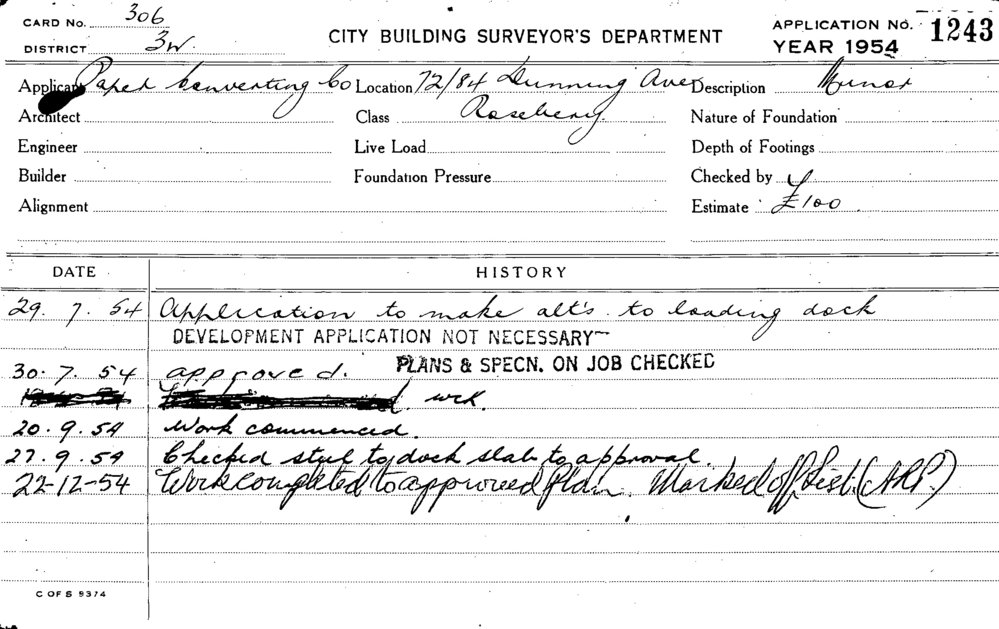 CARD No. 306
DISTRICT 3W.
CITY BUILDING SURVEYOR'S DEPARTMENT
APPLICATION No. 1243
YEAR 1954
Applicant Paper Converting Co Location 72/84 Dunning Ave Description Minor
Architect Class Rosebery. Nature of Foundation
Engineer Live Load Depth of Footings
Builder Foundation Pressure Checked by
Alignment Estimate £100
DATE HISTORY
29. 7. 54 Application to make alt's. to loading dock
DEVELOPMENT APPLICATION NOT NECESSARY
PLANS & SPECN. ON JOB CHECKED
30. 7. 54 approved.
wck.
20. 9. 54 Work commenced.
27. 9. 54 Checked steel to dock slab to approval.
22-12-54 Work completed to approved plan. Marked off List. (ARP.)
C OF S 9374